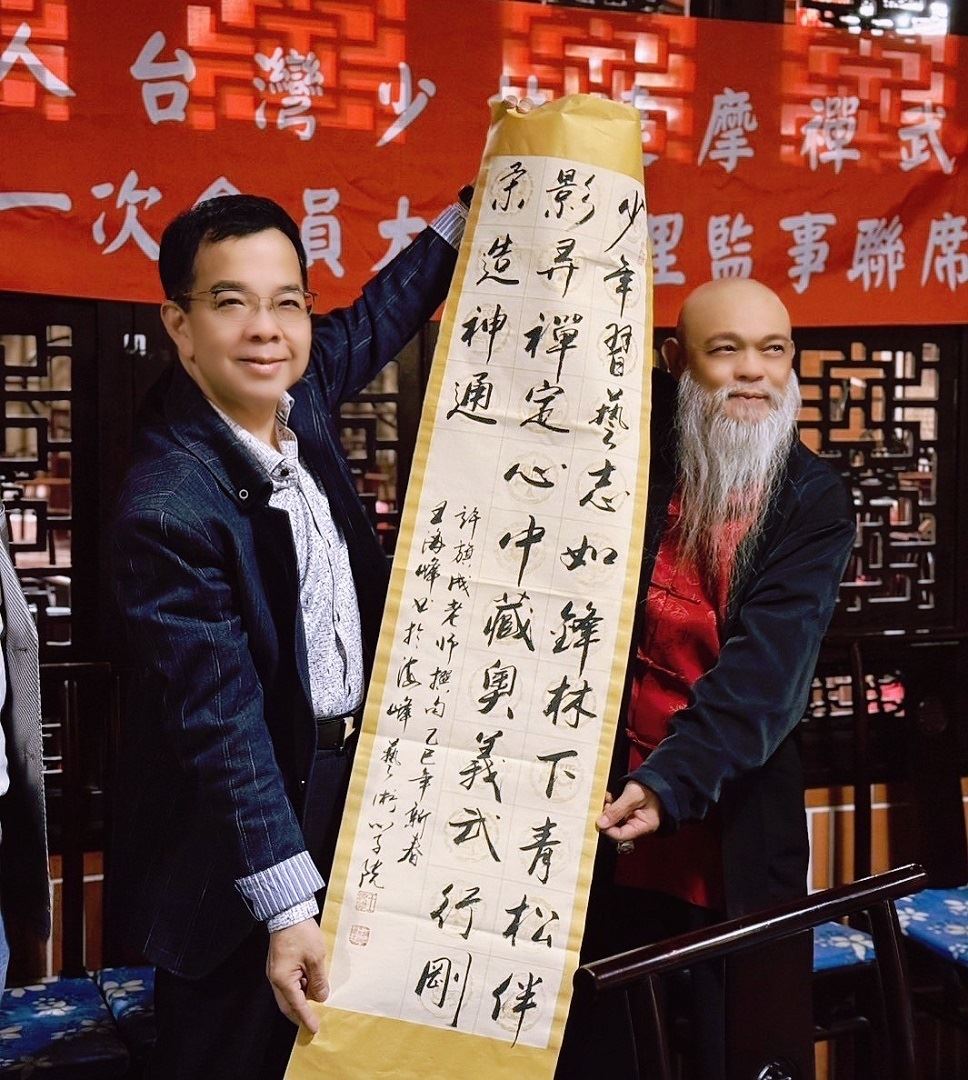 人台灣少林達摩禪武
一次會員大 理監事聯席
少年習藝志如鋒林下青松伴
影昇禪定心中藏奧義武行剛
柔造神通
許旗成老師撰句乙巳年新春
王海峰書於海峰藝術學院